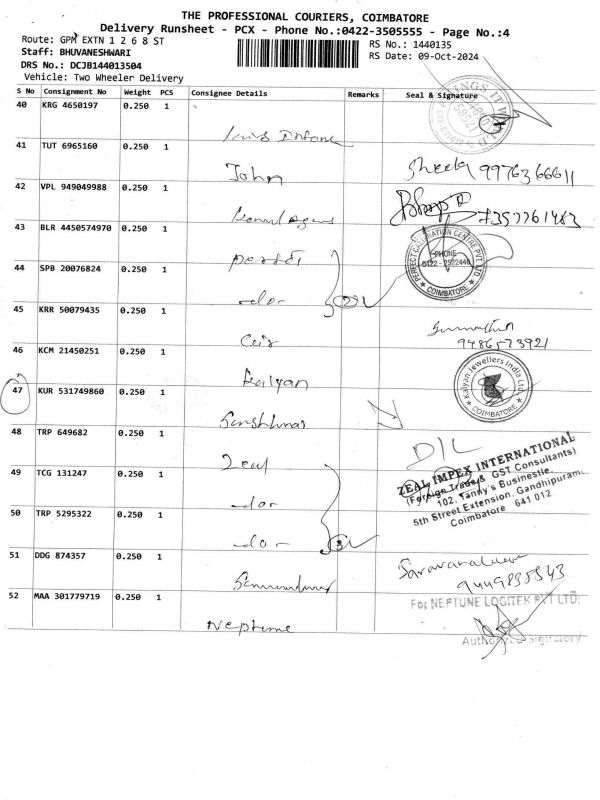 THE PROFESSIONAL COURIERS, COIMBATORE
Delivery Runsheet - PCX - Phone No.:0422-3505555 - Page No.:4
Route: GPM EXTN 1 2 6 8 ST
RS No.: 1440135
Staff: BHUVANESHWARI
RS Date: 09-Oct-2024
DRS No.: DCJB144013504
Vehicle: Two Wheeler Delivery
S No Consignment No Weight PCS Consignee Details Remarks Seal & Signature
40 KRG 4650197 0.250 1
41 TUT 6965160 0.250 1
John Sheela 9976366611
42 VPL 949049988 0.250 1
7357761483
43 BLR 4450574970 0.250 1
PERFECT CENTRE PVT LTD
PHONE
0422 - 2522440
COIMBATORE
44 SPB 20076824 0.250 1
-do-
45 KRR 50079435 0.250 1
9486573921
46 KCM 21450251 0.250 1
Kalyan
Kalyan Jewellers India Ltd.
COIMBATORE
47 KUR 531749860 0.250 1
48 TRP 649682 0.250 1
Zeal
D/L
ZEAL IMPEX INTERNATIONAL
(Foreign Trade & GST Consultants)
102, Tanny's Businestle,
5th Street Extension, Gandhipuram,
Coimbatore 641 012
49 TCG 131247 0.250 1
-do-
50 TRP 5295322 0.250 1
-do-
51 DDG 874357 0.250 1
9449835543
52 MAA 301779719 0.250 1
Neptune
For NEPTUNE LOGITEK PVT LTD.
Authorized Signatory